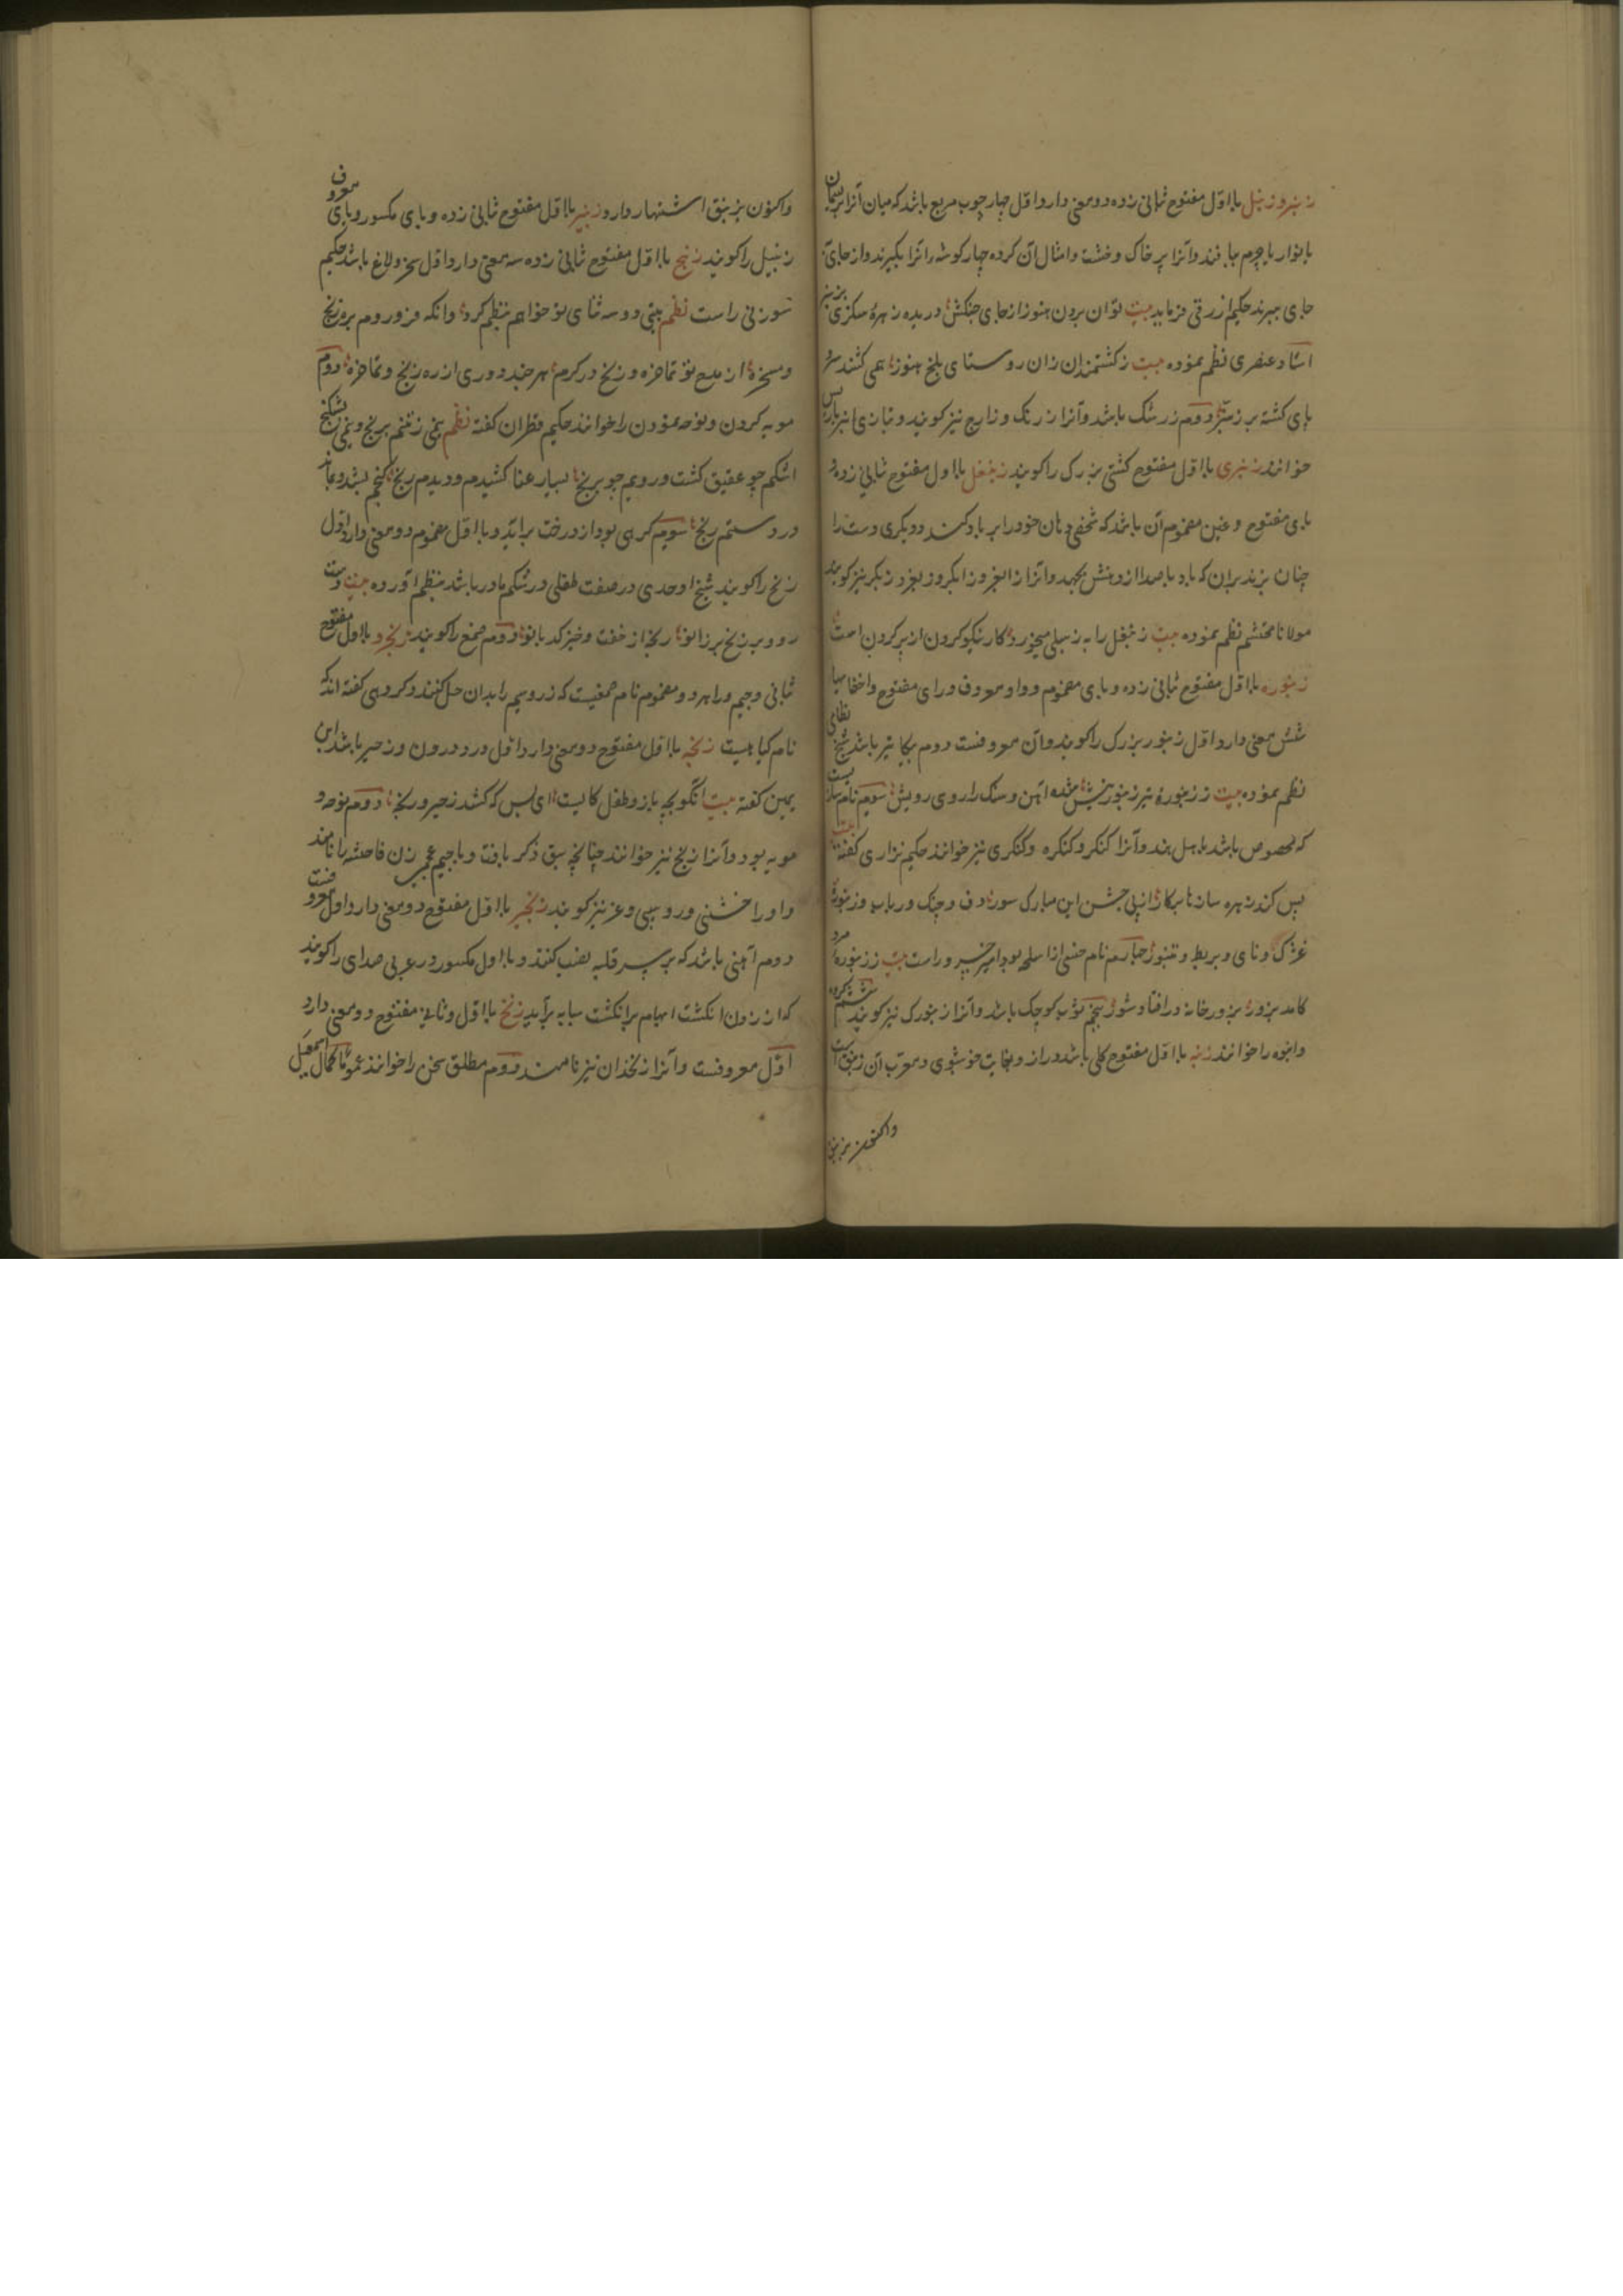 زنبر و زنبل با اوّل مفتوح ثانی زده دو معنی دارد اوّل چهار چوب مربع باشد که میان آنرا بریسمان
یا نوار یا چرم ببافند و آنرا پر خاک و خشت و امثال آن کرده چهار کوشه را آنرا بگیرند و از جای
جای ببرند حکیم ازرقی فرماید بیت توان بردن هنوز از جای جنکش دریده زهرهٔ سکزی بزنبر
استاد عنصری نظم نموده بیت ز کشتمندان زان روستای بلخ هنوز همی کشند سر و
پای کشته بر زنبر دوم زرشک باشد و آنرا زرنک و زارج نیز کویند و بتازی انبرباریس
خوانند زنبری با اوّل مفتوح کشتی بزرک را کویند زنبغل با اول مفتوح ثانی زده و
بای مفتوح و غین مضموم آن باشد که شخصی دهان خود را پر باد کند و دیکری دست را
چنان بزند بران که باد با صدا از دهنش بجهد و آنرا زابغر و زابکر و زبغر و زبکر نیز کویند
مولانا محتشم نظم نموده بیت زنبغل را به ز سیلی میخورد کار نیکو کردن از پر کردن است
زنبوره با اوّل مفتوح ثانی زده و بای مضموم و واو معروف و رای مفتوح و اخفا یها
شش معنی دارد اوّل زنبور بزرک را کویند و آن معروفست دوم پیکان تیر باشد شیخ نظامی
نظم نموده بیت ز زنبورهٔ تیر زنبور نیش شده آهن و سنک را روی ریش سوم نام سازیست
که مخصوص باشد باهل هند و آنرا کنکر و کنکره و کنکری نیز خوانند حکیم نزاری کفته بیت
پس کند زهره ساز ناسکار از پی جشن این مبارک سور دف و چنک و رباب و زنبوره
غژک و نای و بربط و تنبور چهارم نام جنسی از اسلحه بود امیر خسرو راست بیت ز زنبوره مرد
کامد بزور بزنبور خانه در افتاد شور پنجم توپ کوچک باشد و آنرا زنبورک نیز کویند ششم کروه
و انبوه را خوانند زنبه با اوّل مفتوح کلی باشد دراز و بغایت خوشبوی و معرب آن زنبق است
واکنون بزنبق
واکنون بزنبق اشتهار دارد زنبیر با اوّل مفتوح ثانی زده و بای مکسور و یای معروف
زنبیل را کویند زنج با اوّل مفتوح ثانی زده سه معنی دارد اوّل سخر و لاغ باشد حکیم
سوزنی راست نظم بیتی دو سه ثنای تو خواهم بنظم کرد وانکه فرو روم بره زنج
و مسخره از مدح تو تماخره و زنج در کرم هر چند دوری از ره زنج و تماخره دوم
مویه کردن و نوحه نمودن را خوانند حکیم قطران کفته نظم نمی ز تنم برنج و نیمی بشکنج
اشکم چو عقیق کشت و رویم چو برنج بسیار عنا کشیدم و دیدم رنج کنجم بشد و بماند
در دستم زنج سوم کرهی بود از درخت برآید و با اوّل مضموم دو معنی دارد اوّل
زنخ را کویند شیخ اوحدی در صفت طفلی در شکم مادر باشد بنظم آورده بیت دست
رو و بر زنج بر زانو رنجه از خفت و خیز کدبانو دوم صمغ را کویند زنجرو با اول مفتوح
ثانی و جیم و را هر دو مضموم نام صمغیست که زر و سیم را بدان حل کنند و کروهی کفته اند که
نام کیاهیست زنجه با اوّل مفتوح دو معنی دارد اوّل درد درون و زحیر باشد ابن
یمین کفته بیت آنکو بچه باز و طفل کالیست ای بس که کشد زحیر و زنجه دوم نوحه و
مویه بود و آنرا زنج نیز خوانند چنانچه سبق ذکر یافت و با جیم عجمی زن فاحشه را نامند
و او را خشنی و روسپی و غر نیز کویند زنجیر با اوّل مفتوح دو معنی دارد اول معروفست
دوم آهنی باشد که بر سر قلبه نصب کنند و با اول مکسور در عربی صدای را کویند
که از زدن انکشت ابهام بر انکشت سبابه برآید زنخ با اوّل و ثانی مفتوح دو معنی دارد
اوّل معروفست و آنرا زنخدان نیز نامند دوم مطلق سخن را خوانند عموماً کمال اسمعیل